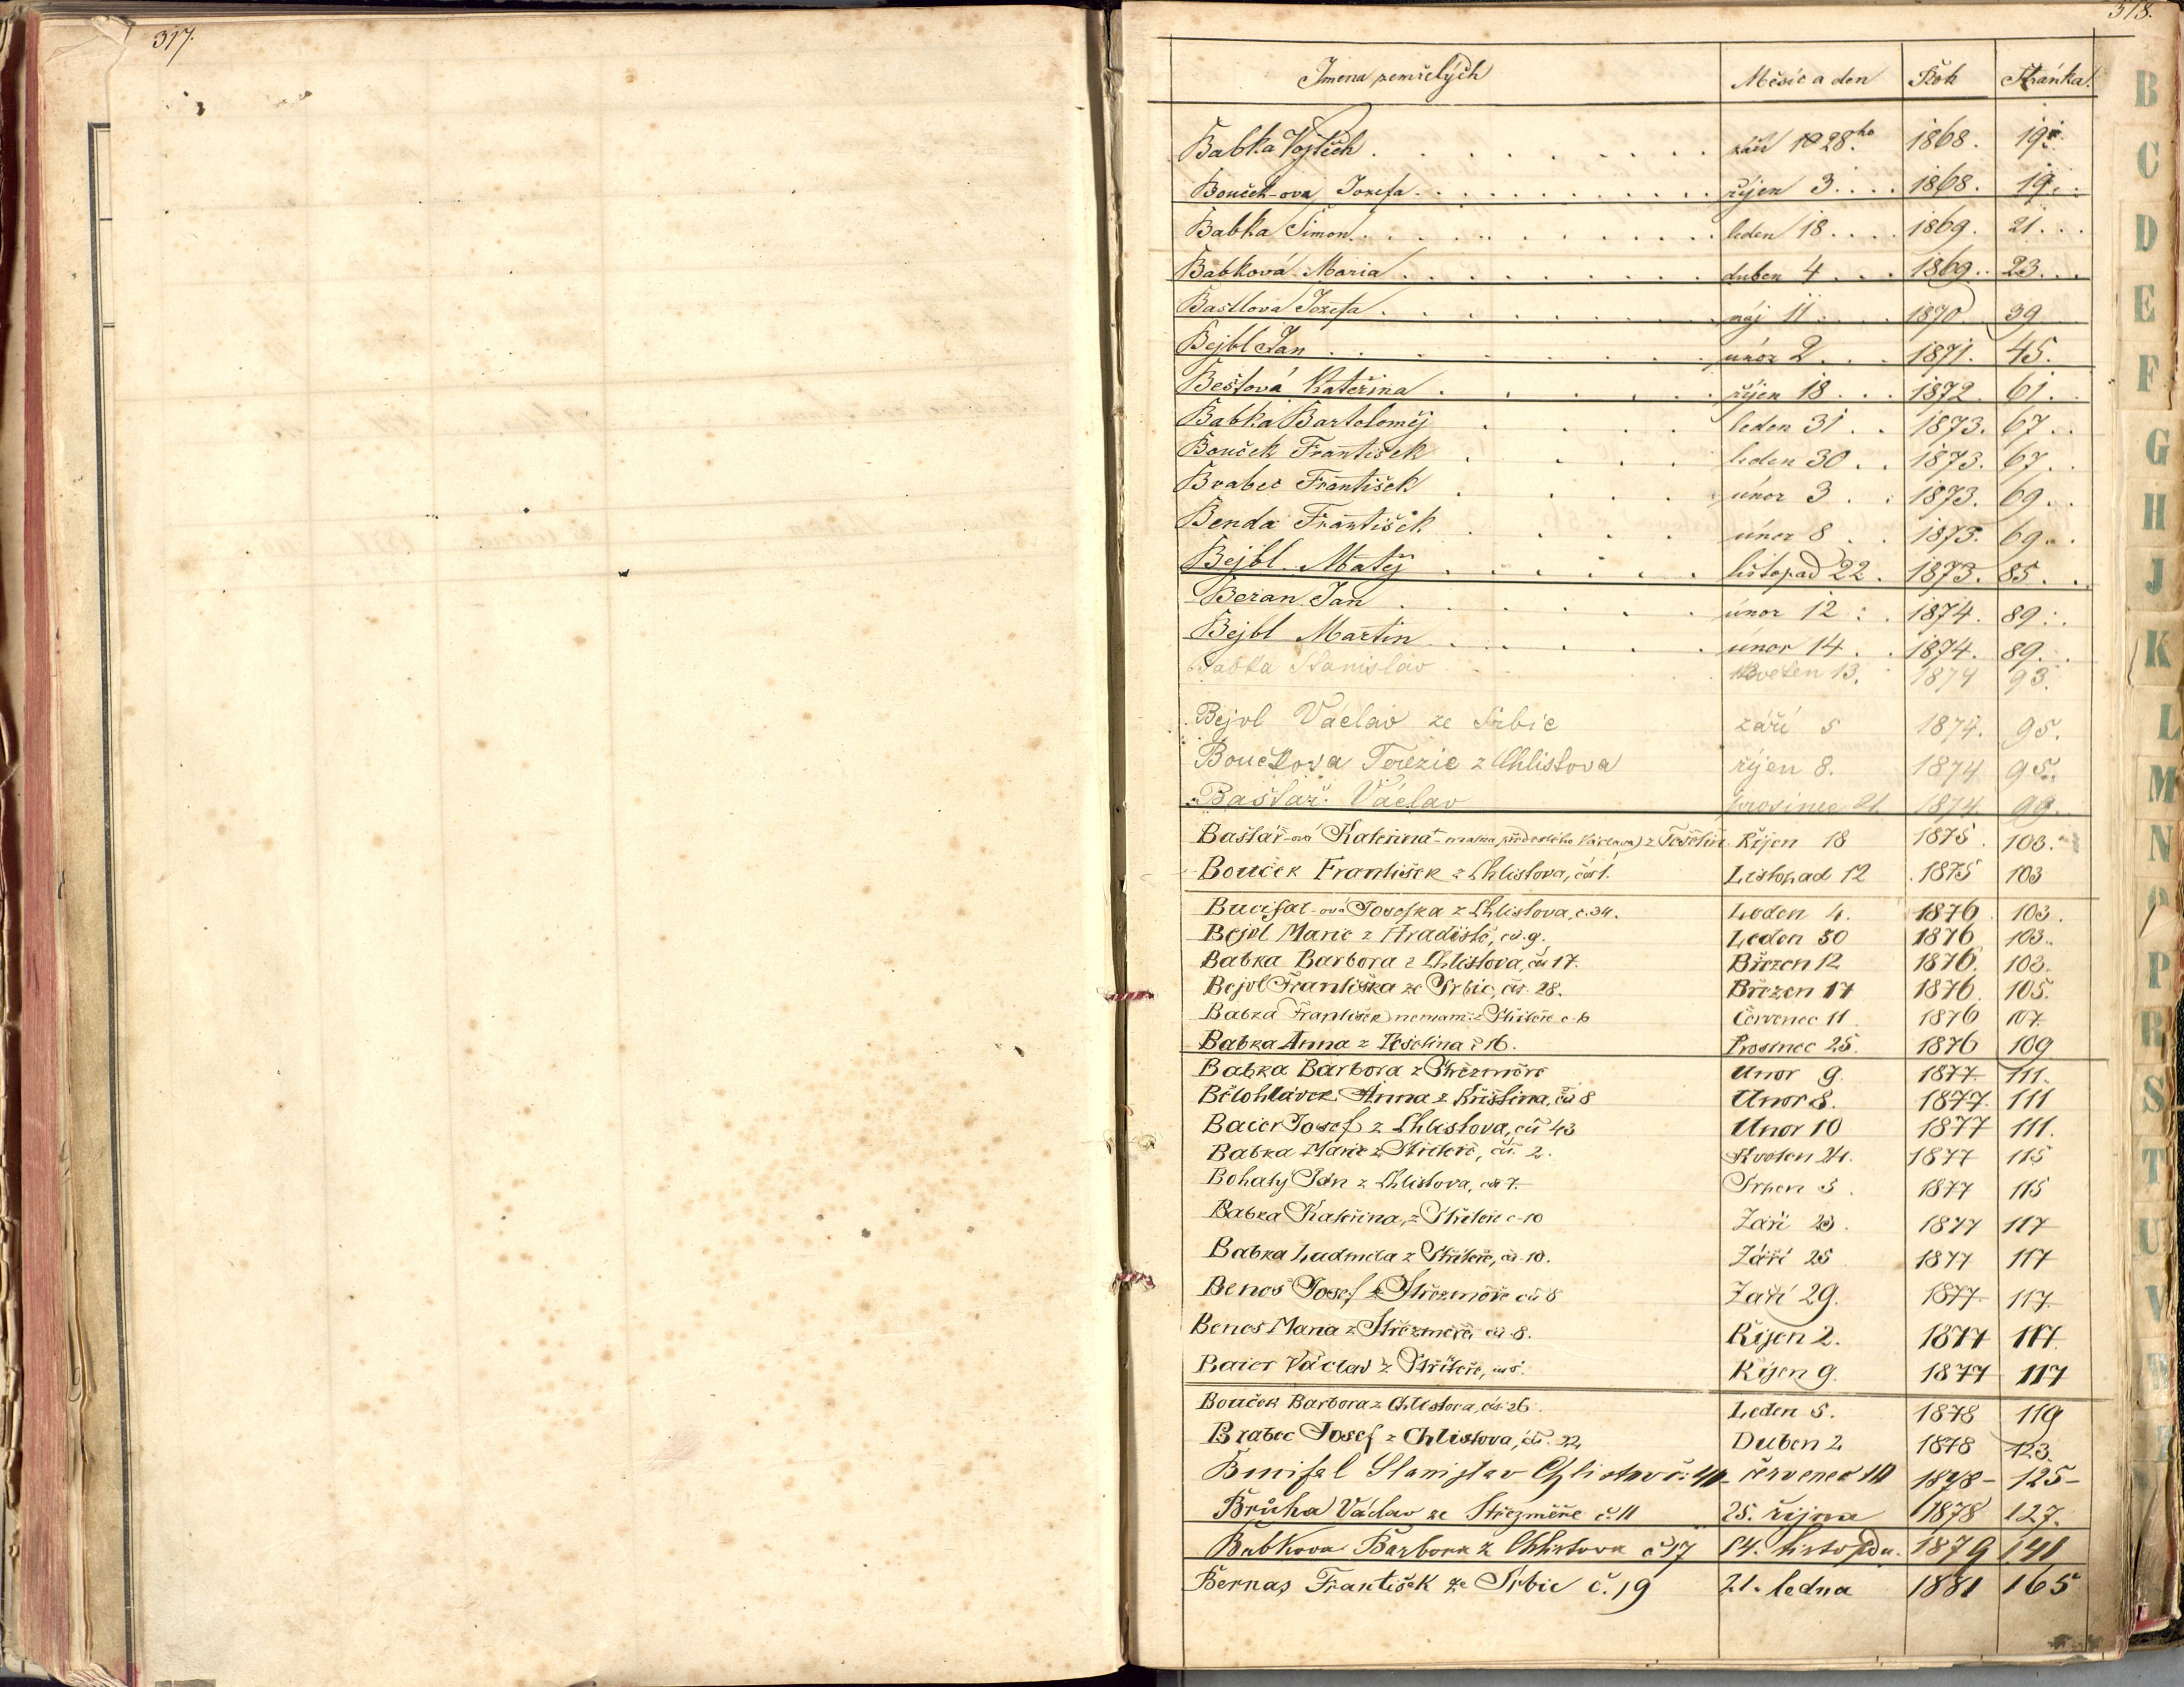 317.
318.
Jmena zemřelých Měsíc a den Rok Stránka
Babka Vojtěch září 28ho 1868. 19.
Bouček-ova Josefa říjen 3 1868. 19.
Babka Šimon leden 18 1869. 21
Babková Maria duben 4 1869. 23
Baštlova Josefa máj 11 1870 39
Bejbl Jan únor 2 1871. 45.
Beštová Kateřina říjen 18 1872. 61.
Babka Bartoloměj leden 31 1873. 67.
Bouček František leden 30 1873. 67.
Brabec František únor 3 1873. 69.
Benda František únor 8 1873. 69.
Bejbl Matěj listopad 22. 1873. 85.
Beran Jan únor 12 1874. 89.
Bejbl Martin únor 14 1874. 89.
Babka Stanislav Květen 13. 1874 93.
Bejbl Václav ze Srbic září 5 1874. 95.
Boučkova Terezie z Chlistova říjen 8. 1874 95.
Baštář Václav prosinec 21 1874. 99.
Baštář-ová Kateřina - matka předešlého Václava) z Říjen 18 1875. 103.
Bouček František z Chlistova, čís 1. Listopad 12 1875 103
Bucifal-ová Josefka z Chlistova, č. 34. Leden 4. 1876 103.
Bejbl Marie z Hradiště, čís. 9. Leden 30 1876 103.
Babka Barbora z Chlistova, čís 17. Březen 12 1876. 103.
Bejbl Františka ze Srbic, čís. 28. Březen 17 1876. 105.
Babka František z Střiteře č. 6 Červenec 11 1876 107.
Babka Anna z Těšetina č 16. Prosinec 25. 1876 109
Babka Barbora z Střezměře Unor 9. 1877. 111.
Bělohlávek Anna z Křištína, čís 8 Unor 8. 1877. 111
Baier Josef z Chlistova, čís 43 Unor 10 1877 111.
Babka Marie z Střiteře, čís. 2. Květen 24. 1877 115
Bohatý Jan z Chlistova, čís 7. Srpen 3. 1877 115
Babka Kateřina, z Střiteře č. 10 Září 1877 117
Babka Ludmila z Střiteře, čís. 10. Září 25 1877 117
Benes Josef z Střezměře čís 8 Září 29. 1877. 117.
Benes Maria z Střezměře čís 8. Říjen 2. 1877 117.
Baier Václav z Střiteře, Říjen 9. 1877 117
Bouček Barbora z Chlistova, čís. 26. Leden 5. 1878 119
Brabec Josef z Chlistova, čís. 22, Duben 2 1878 123.
Bucifal Stanislav Chlistov č: červenec 1878 - 125 -
Brůha Václav ze Střezměře č. 11 25. října 1878 127.
Babkova Barbora z Chlistova č 17 14. listopadu. 1879 141
Bernas František ze Srbic č. 19 21. ledna 1881 165
B
C
D
E
F
G
H
J
K
L
M
N
O
P
R
S
T
U
V
W